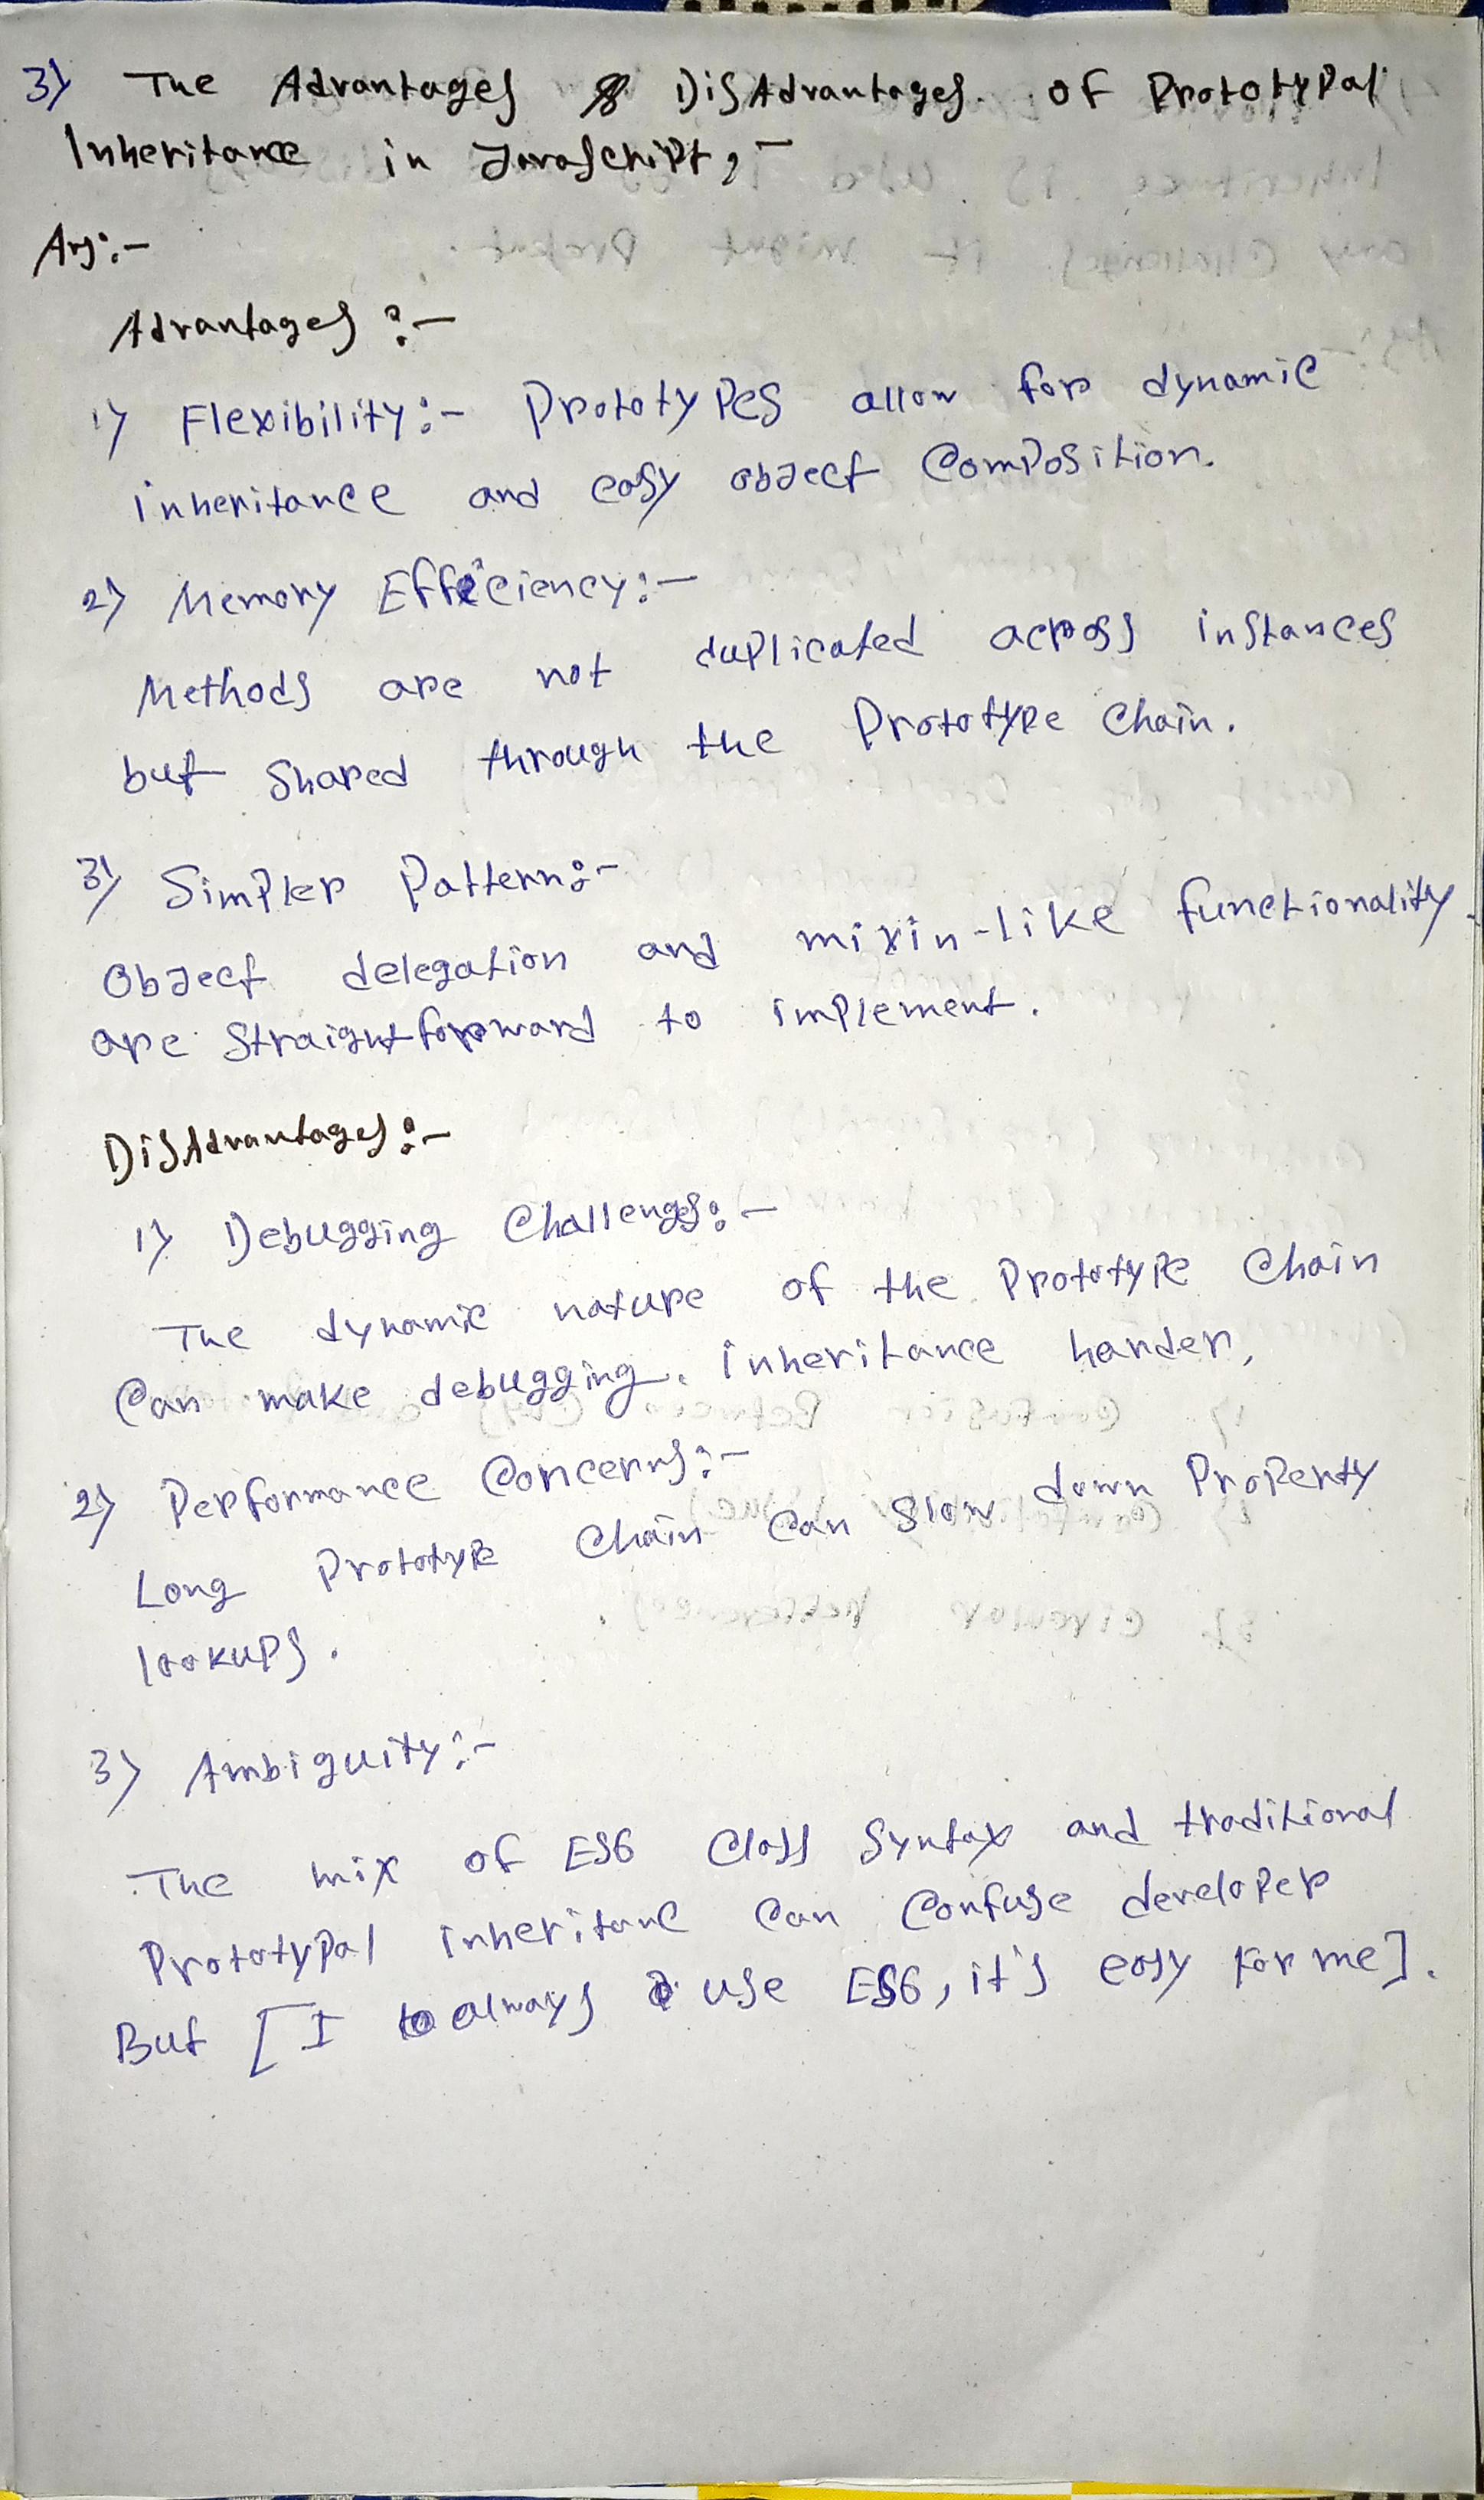 3) The Advantages & DisAdvantages of Prototypal
Inheritance in JavaScript,-
Ans:-
Advantages :-
1) Flexibility:- Prototypes allow for dynamic
inheritance and easy object Composition.
2) Memory Efficiency:-
Methods are not duplicated across instances
but Shared through the Prototype Chain.
3) Simpler Pattern:-
Object delegation and mixin-like functionality
are Straightforward to implement.
DisAdvantages :-
1) Debugging Challenges:-
The dynamic nature of the Prototype Chain
Can make debugging inheritance harder,
2) Performance Concerns:-
Long Prototype Chain Can Slow down Property
lookups.
3) Ambiguity:-
The mix of ES6 Class Syntax and traditional
Prototypal inheritanc Can Confuse developer
But [I always use ES6, it's easy for me].